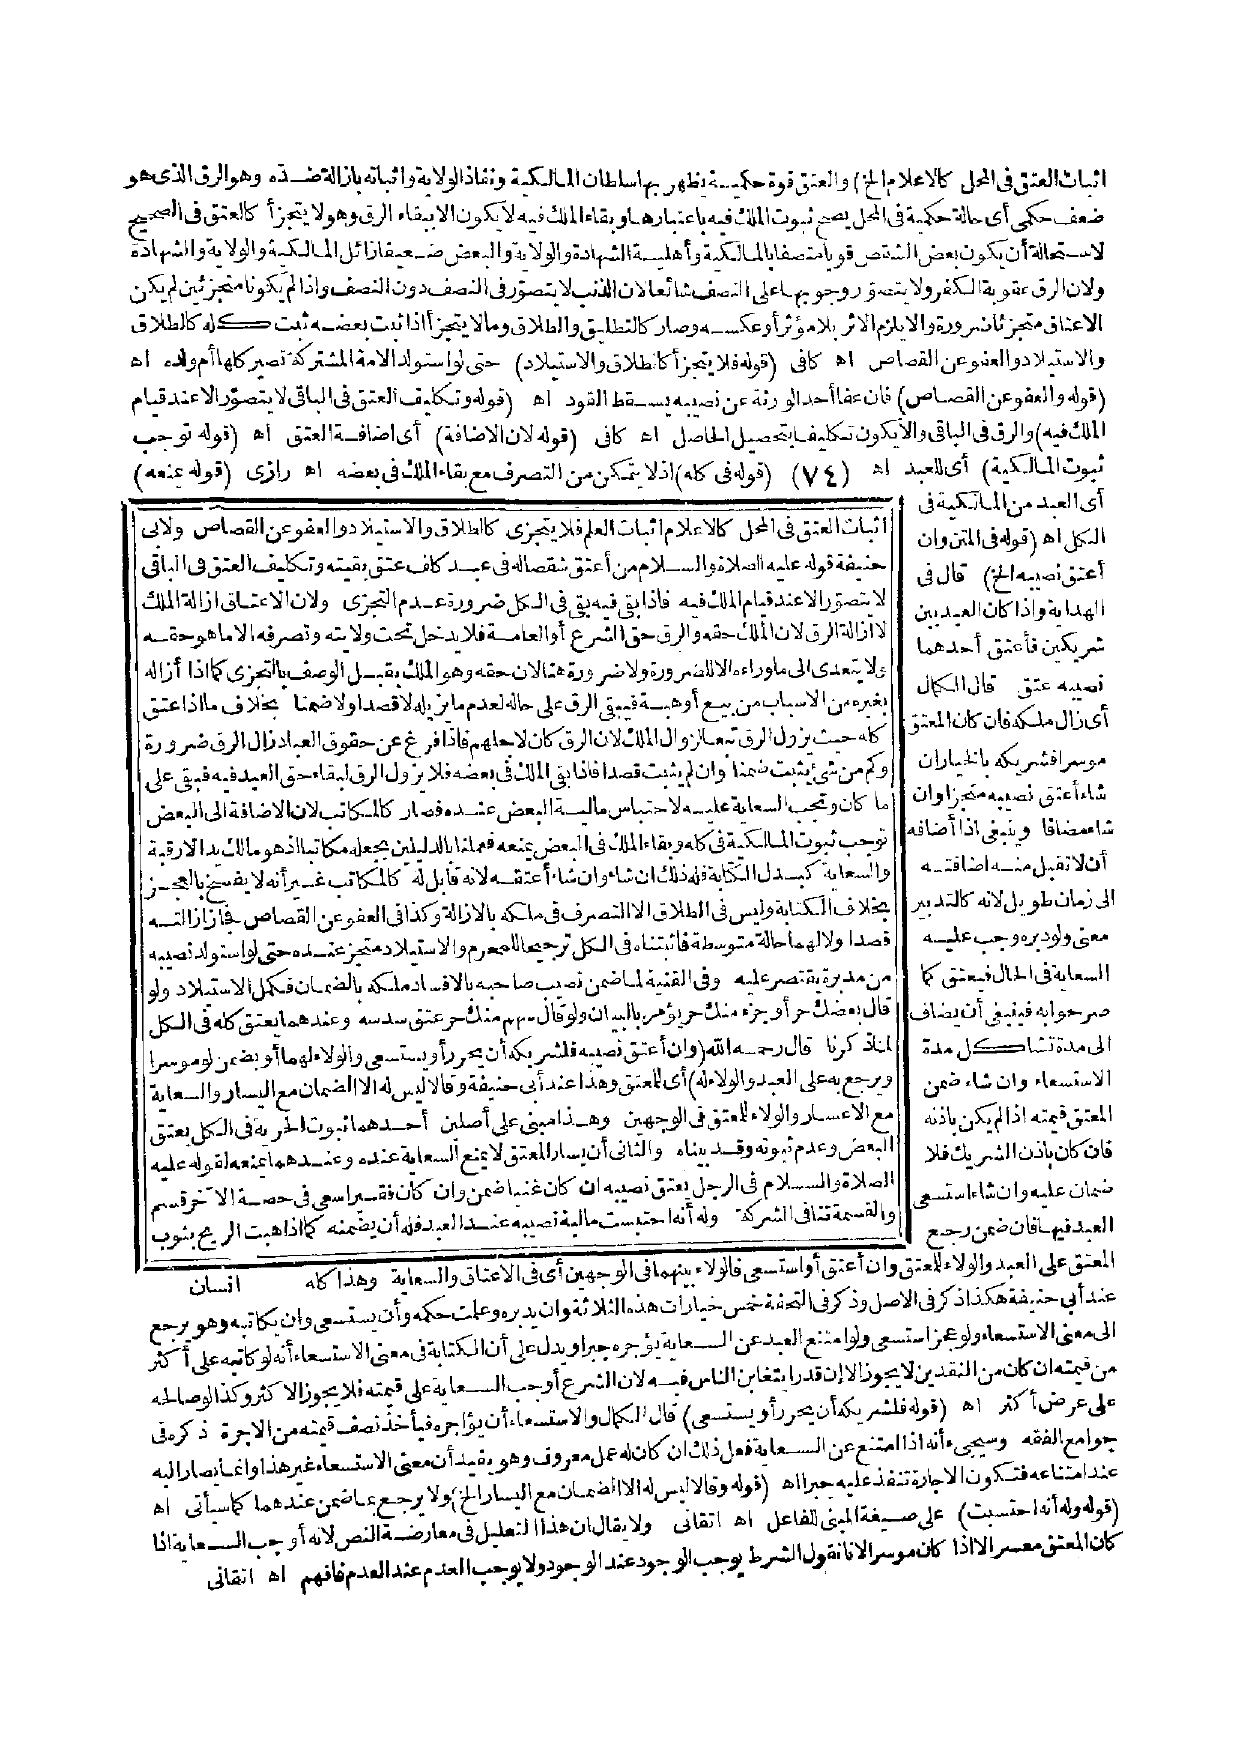 اثبات العتق فى المحل كالاعلام الخ) والعتق قوة حكمية يظهر بها سلطان المالكية ونفاذ الولاية واثباته بازالة ضده وهو الرق الذى هو
ضعف حكمى أى حالة حكمية فى المحل يصح ثبوت الملك فيه باعتبارها وبقاء الملك فيه لا يكون الا ببقاء الرق وهو لا يتجزأ كالعتق فى الصحيح
لاستحالة أن يكون بعض الشخص قويا متصفا بالمالكية وأهلية الشهادة والولاية والبعض ضعيفا زائل المالكية والولاية والشهادة
ولان الرق عقوبة الكفر ولا يتصور وجوبها على النصف شائعا لان الذنب لا يتصور فى النصف دون النصف واذا لم يكونا متجزئين لم يكن
الاعتاق متجزئا ضرورة والا يلزم الاثر بلا مؤثر أو عكسه وصار كالتطليق والطلاق وما لا يتجزأ اذا ثبت بعضه ثبت كله كالطلاق
والاستيلاد والعفو عن القصاص اه كافى (قوله فلا يتجزأ كالطلاق والاستيلاد) حتى لو استولد الامة المشتركة تصير كلها أم ولده اه
(قوله والعفو عن القصاص) فان عفا أحد الورثة عن نصيبه يسقط القود اه (قوله وتكليف العتق فى الباقى لا يتصور الا عند قيام
الملك فيه) والرق فى الباقى والا يكون تكليفا بتحصيل الحاصل اه كافى (قوله لان الاضافة) أى اضافة العتق اه (قوله توجب
ثبوت المالكية) أى للعبد اه (٧٤) (قوله فى كله) اذ لا يتمكن من التصرف مع بقاء الملك فى بعضه اه رازى (قوله عنعه)
أى العبد من المالكية فى
الكل اه (قوله فى المتن وان
أعتق نصيبه الخ) قال فى
الهداية واذا كان العبد بين
شريكين فأعتق أحدهما
نصيبه عتق قال الكمال
أى زال ملكه فان كان المعتق
موسرا فشريكه بالخيار ان
شاء أعتق نصيبه منجزا وان
شاء مضافا وينبغى اذا أضافه
أن لا تقبل منه اضافته
الى زمان طويل لانه كالتدبير
معنى ولو دبره وجب عليه
السعاية فى الحال فيعتق كما
صرحوا به فينبغى أن يضاف
الى مدة تشاكل مدة
الاستسعاء وان شاء ضمن
المعتق قيمته اذا لم يكن باذنه
فان كان باذن الشريك فلا
ضمان عليه وان شاء استسعى
العبد فيها فان ضمن رجع
اثبات العتق فى المحل كالاعلام اثبات العلم فلا يتجزى كالطلاق والاستيلاد والعفو عن القصاص ولابى
حنيفة قوله عليه الصلاة والسلام من أعتق شقصا له فى عبد كلف عتق بقيته وتكليف العتق فى الباقى
لا يتصور الا عند قيام الملك فيه فاذا بقى فيه بقى فى الكل ضرورة عدم التجزى ولان الاعتاق ازالة الملك
لا ازالة الرق لان الملك حقه والرق حق الشرع أو العامة فلا يدخل تحت ولايته وتصرفه الا ما هو حقه
ولا يتعدى الى ما وراءه الا للضرورة ولا ضرورة هنا لان حقه وهو الملك يقبل الوصف بالتجزى كما اذا أزاله
بغيره من الاسباب من بيع أو هبة فيبقى الرق على حاله لعدم ما يزيله لا قصدا ولا ضمنا بخلاف ما اذا عتق
كله حيث يزول الرق تبعا لزوال الملك لان الرق كان لاجلهم فاذا فرغ عن حقوق العباد زال الرق ضرورة
وكم من شئ يثبت ضمنا وان لم يثبت قصدا فاذا بقى الملك فى بعضه فلا يزول الرق لبقاء حق العبد فيه فبقى على
ما كان وتجب السعاية عليه لاحتباس مالية البعض عنده فصار كالمكاتب لان الاضافة الى البعض
توجب ثبوت المالكية فى كله وبقاء الملك فى البعض يمنعه فعملنا بالدليلين بجعله مكاتبا اذ هو مالك يدا لا رقبة
والسعاية كبدل الكتابة فله ذلك ان شاء وان شاء أعتقه لانه قابل له كالمكاتب غير أنه لا يفسخ بالعجز
بخلاف الكتابة وليس فى الطلاق الا التصرف فى ملكه بالازالة وكذا فى العفو عن القصاص فجاز ازالته
قصدا ولا لهما حالة متوسطة فاثبتناه فى الكل ترجيحا للمحرم والاستيلاد متجز عنده حتى لو استولد نصيبه
من مدبرة يقتصر عليه وفى القنية لما ضمن نصيب صاحبه بالافساد ملكه بالضمان فكمل الاستيلاد ولو
قال بعضك حر أو جزء منك حر يؤمر بالبيان ولو قال سهم منك حر عتق سدسه وعندهما يعتق كله فى الكل
لما ذكرنا قال رحمه الله (وان أعتق نصيبه فلشريكه أن يحرر أو يستسعى والولاء لهما أو يضمن لو موسرا
ويرجع به على العبد والولاء له) أى للمعتق وهذا عند أبى حنيفة وقالا ليس له الا الضمان مع اليسار والسعاية
مع الاعسار والولاء للمعتق فى الوجهين وهذا مبنى على أصلين أحدهما ثبوت الحرية فى الكل بعتق
البعض وعدم ثبوته وقد بيناه والثانى أن يسار المعتق لا يمنع السعاية عنده وعندهما يمنعه لقوله عليه
الصلاة والسلام فى الرجل يعتق نصيبه ان كان غنيا ضمن وان كان فقيرا سعى فى حصة الآخر قسم
والقسمة تنافى الشركة وله أنه احتبست مالية نصيبه عند العبد فله أن يضمنه كما اذا هبت الريح بثوب
انسان
المعتق على العبد والولاء للمعتق وان أعتق أو استسعى فالولاء بينهما فى الوجهين أى فى الاعتاق والسعاية وهذا كله
عند أبى حنيفة هكذا ذكر فى الاصل وذكر فى التحفة خمس خيارات هذه الثلاثة وان يدبره وعلمت حكمه وأن يستسعى وان يكاتبه وهو يرجع
الى معنى الاستسعاء ولو عجز استسعى ولو امتنع العبد عن السعاية يؤجره جبرا ويدل على أن الكتابة فى معنى الاستسعاء أنه لو كاتبه على أكثر
من قيمته ان كان من النقدين لا يجوز الا ان قدرا يتغابن الناس فيه لان الشرع أوجب السعاية على قيمته فلا يجوز الاكثر وكذا لو صالحه
على عرض أكثر اه (قوله فلشريكه أن يحرر أو يستسعى) قال الكمال والاستسعاء أن يؤاجره فيأخذ نصف قيمته من الاجرة ذكره فى
جوامع الفقه وسيجىء أنه اذا امتنع عن السعاية فعل ذلك ان كان له عمل معروف وهو يفيد أن معنى الاستسعاء غير هذا وانما يصار اليه
عند امتناعه فتكون الاجارة تنفذ عليه جبرا اه (قوله وقالا ليس له الا الضمان مع اليسار الخ) ولا يرجع بما ضمن عندهما كما سيأتى اه
(قوله وله أنه احتبست) على صيغة المبنى للفاعل اه اتقانى ولا يقال ان هذا التعليل فى معارضة النص لانه أوجب السعاية اذا
كان المعتق معسرا لا اذا كان موسرا لانا نقول الشرط يوجب الوجود عند الوجود ولا يوجب العدم عند العدم فافهم اه اتقانى